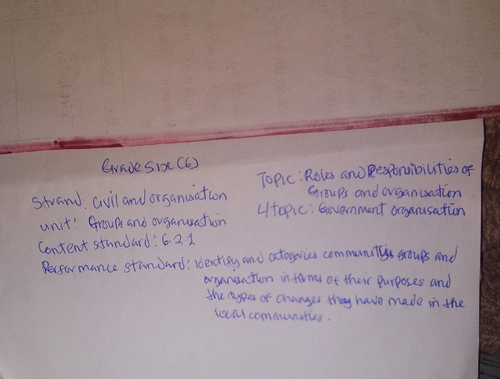 Grade Six (6)
Strand: Civil and organisation
unit: Groups and organisation
Content standard: 6.2.1
Topic: Roles and Responsibilities of
Groups and organisation
4 Topic: Government organisation
Performance standard: Identify and categories communities groups and
organisation in terms of their purposes and
the types of changes they have made in the
local communities.